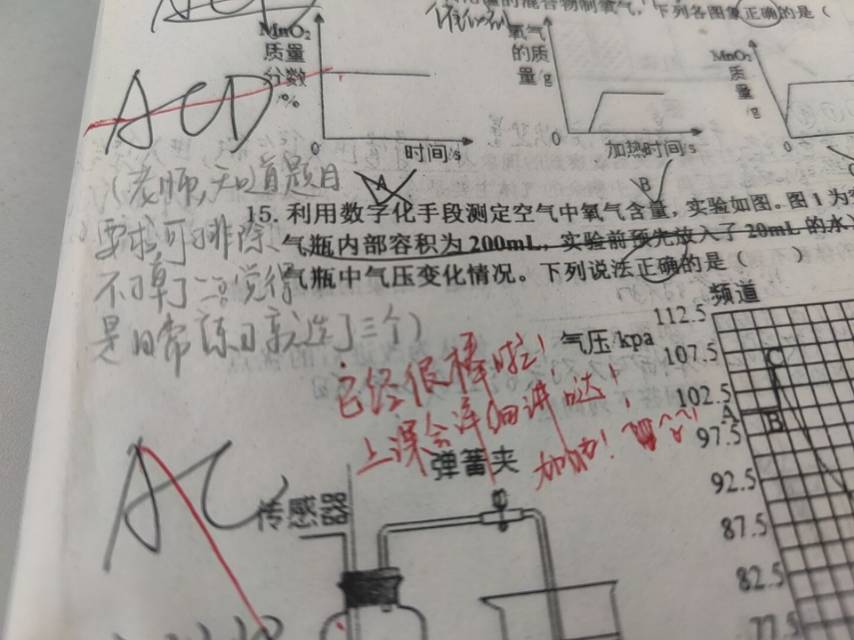 的混合物制氧气，下列各图象正确的是（
MnO₂
质量
分数
/%
0
时间/s
A
氧气
的质
量/g
0
加热时间/s
B
MnO₂
质
量
/g
0
ACD
（老师，
题目
要求可
排除
不了
觉得
是日常练习就选了三个）
15. 利用数字化手段测定空气中氧气含量，实验如图。图1为
气瓶内部容积为200mL，实验前预先放入了20mL的水
气瓶中气压变化情况。下列说法正确的是（　　）
频道
气压/kpa
112.5
107.5
102.5
97.5
92.5
87.5
82.5
77.5
C
A
B
已经很棒啦！
上课会详细讲哒！
加油！
AC
弹簧夹
传感器